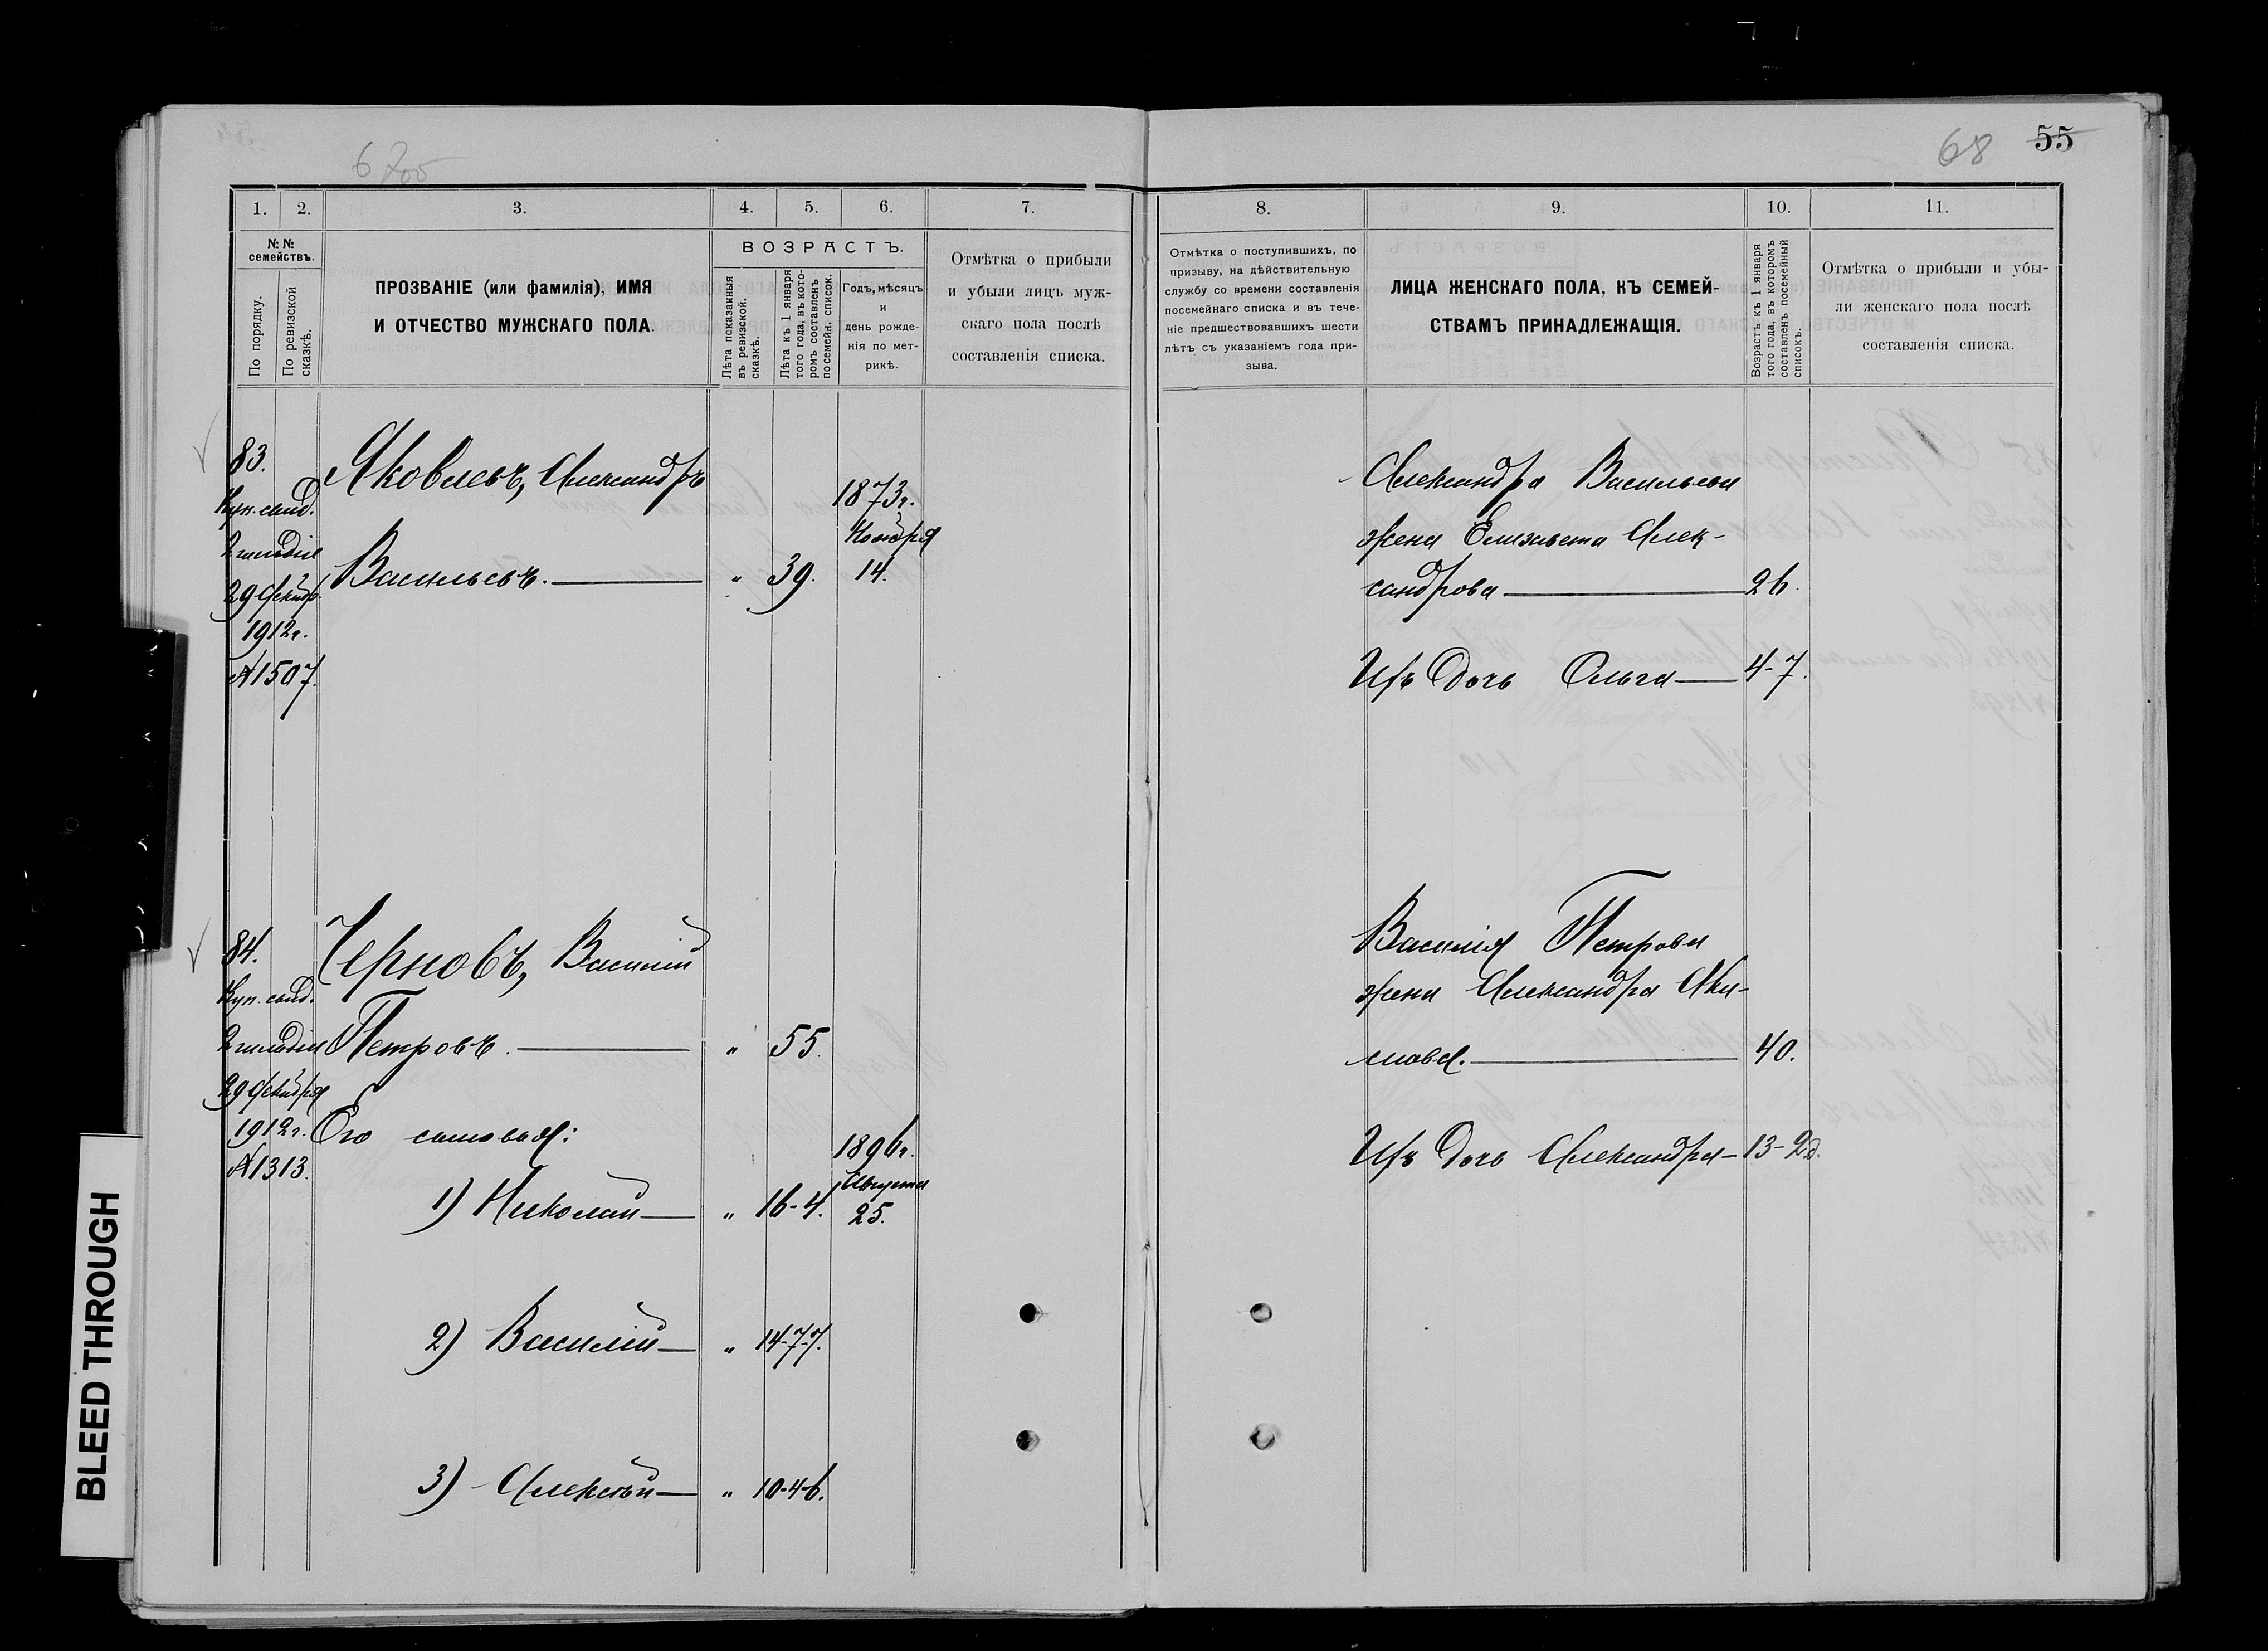 68 55
1. 2. 3. 4. 5. 6. 7.
№ №
семействъ.
По порядку.
По ревизской
сказкѣ.
ПРОЗВАНІЕ (или фамилія), ИМЯ
И ОТЧЕСТВО МУЖСКАГО ПОЛА.
ВОЗРАСТЪ.
Лѣта показанныя
въ ревизской.
сказкѣ.
Лѣта къ 1 января
того года, въ кото-
ромъ составленъ
посемейн. список.
Годъ, мѣсяцъ
и
день рожде-
нія по мет-
рикѣ.
Отмѣтка о прибыли
и убыли лицъ муж-
скаго пола послѣ
составленія списка.
83.
Куп. свид.
2 гильдіи
29 Декабр.
1912 г.
№ 1507.
Яковлевъ, Александръ
Васильевъ. „ 39.
1873 г.
Ноября
14.
84.
Куп. свид.
2 гильдіи
29 Декабря
1912 г.
№ 1313.
Черновъ, Василій
Петровъ. „ 55.
Его сыновья:
1) Николай „ 16-4.
1896 г.
Августа
25.
2) Василій „ 14-7-7.
3) Алексѣй „ 10-4-6.
8. 9. 10. 11.
Отмѣтка о поступившихъ, по
призыву, на дѣйствительную
службу со времени составленія
посемейнаго списка и въ тече-
ніе предшествовавшихъ шести
лѣтъ съ указаніемъ года при-
зыва.
ЛИЦА ЖЕНСКАГО ПОЛА, КЪ СЕМЕЙ-
СТВАМЪ ПРИНАДЛЕЖАЩІЯ.
Возрастъ къ 1 января
того года, въ которомъ
составленъ посемейный
списокъ.
Отмѣтка о прибыли и убы-
ли женскаго пола послѣ
составленія списка.
Александра Васильева
жена Елизавета Алек-
сандрова 26.
Ихъ дочь Ольга 4-7.
Василія Петрова
жена Александра Яки-
мовна. 40.
Ихъ дочь Александра 13-2д.
BLEED THROUGH